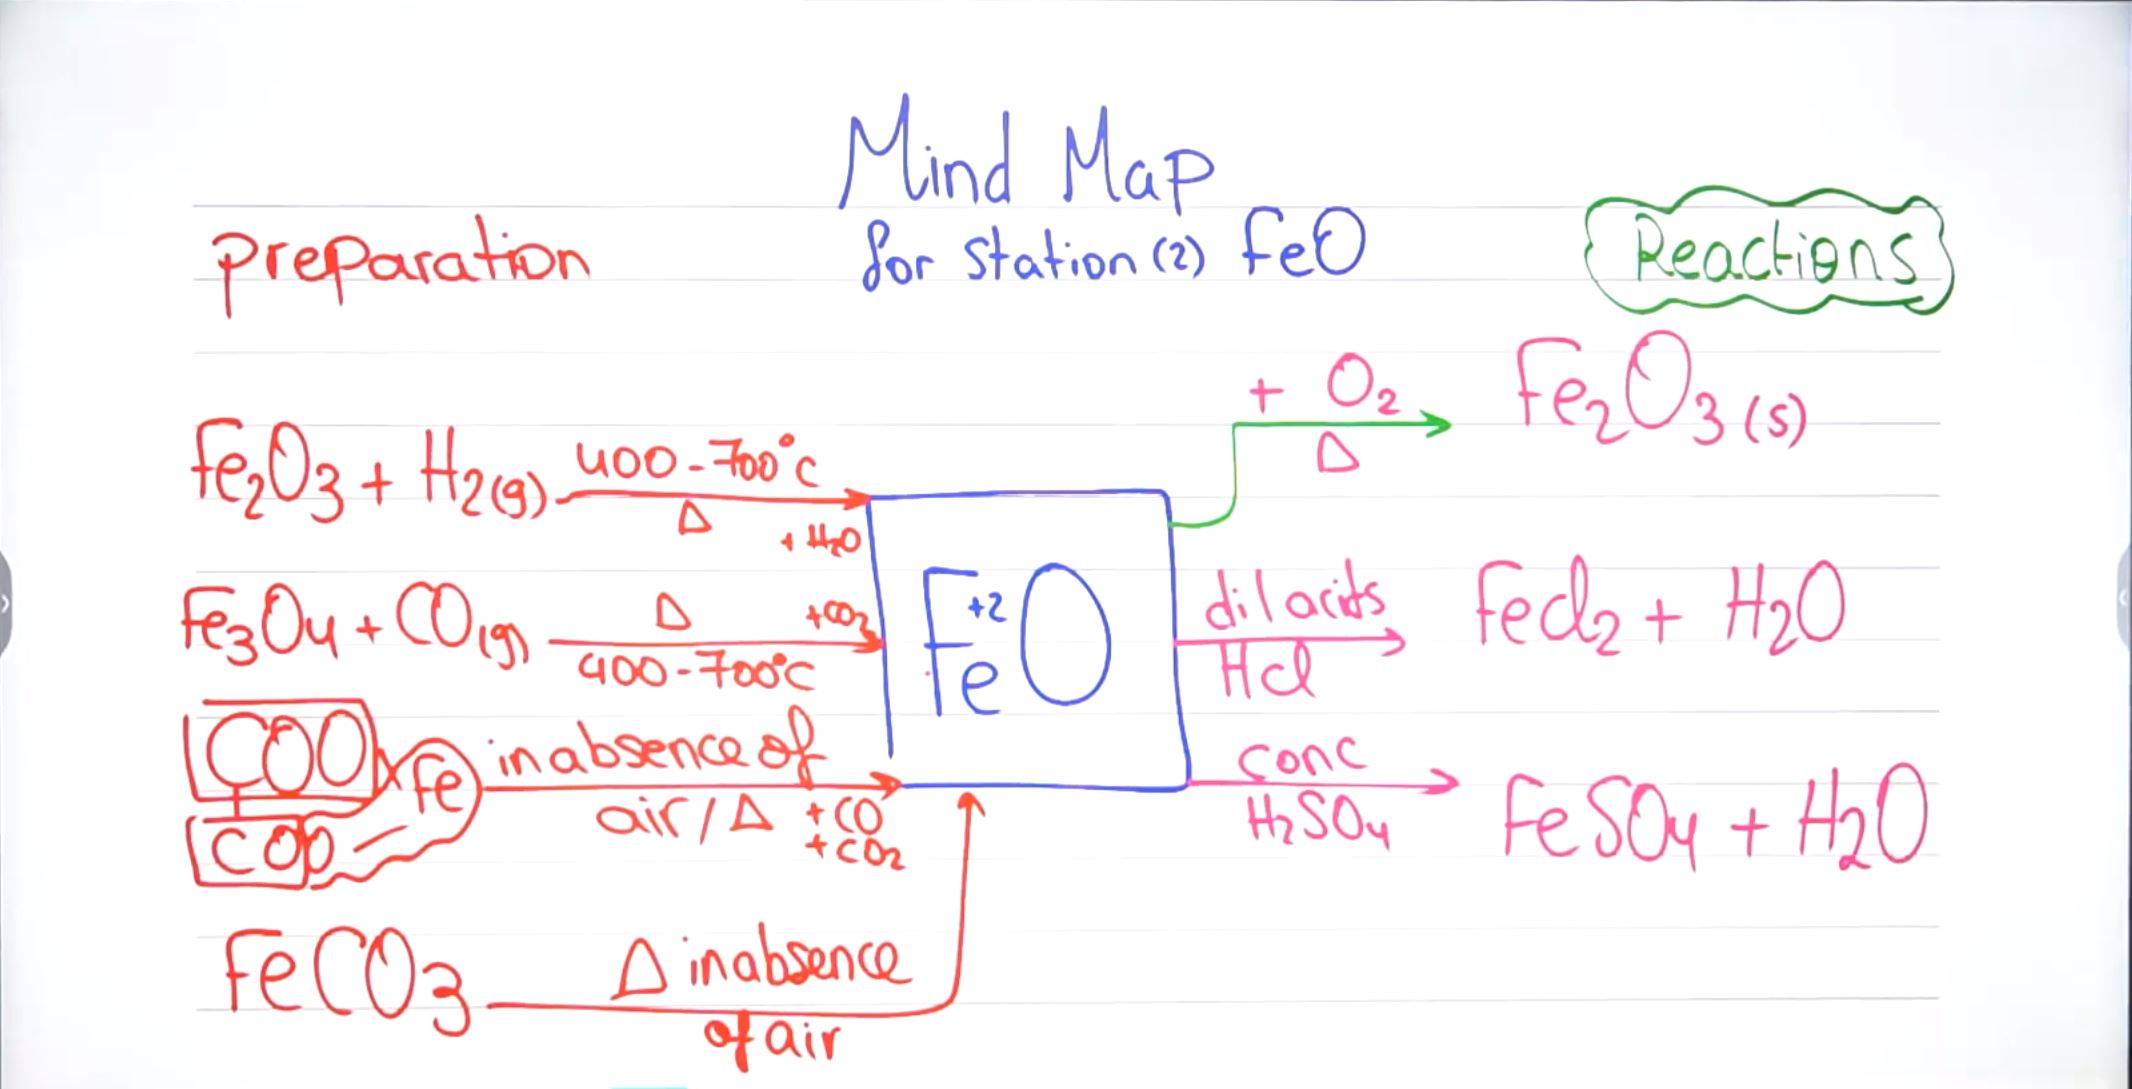 Mind Map
for station (2) FeO
preparation
Reactions
Fe2O3 + H2(g) 400-700°c
Δ
+ H2O
Fe3O4 + CO(g) Δ +CO2
400-700°C
COO Fe in absence of
COO
air/Δ +CO
+CO2
FeCO3 Δ in absence
of air
+2
FeO
+ O2
Δ
Fe2O3(s)
dil acids
Hcl
Fecl2 + H2O
conc
H2SO4
FeSO4 + H2O